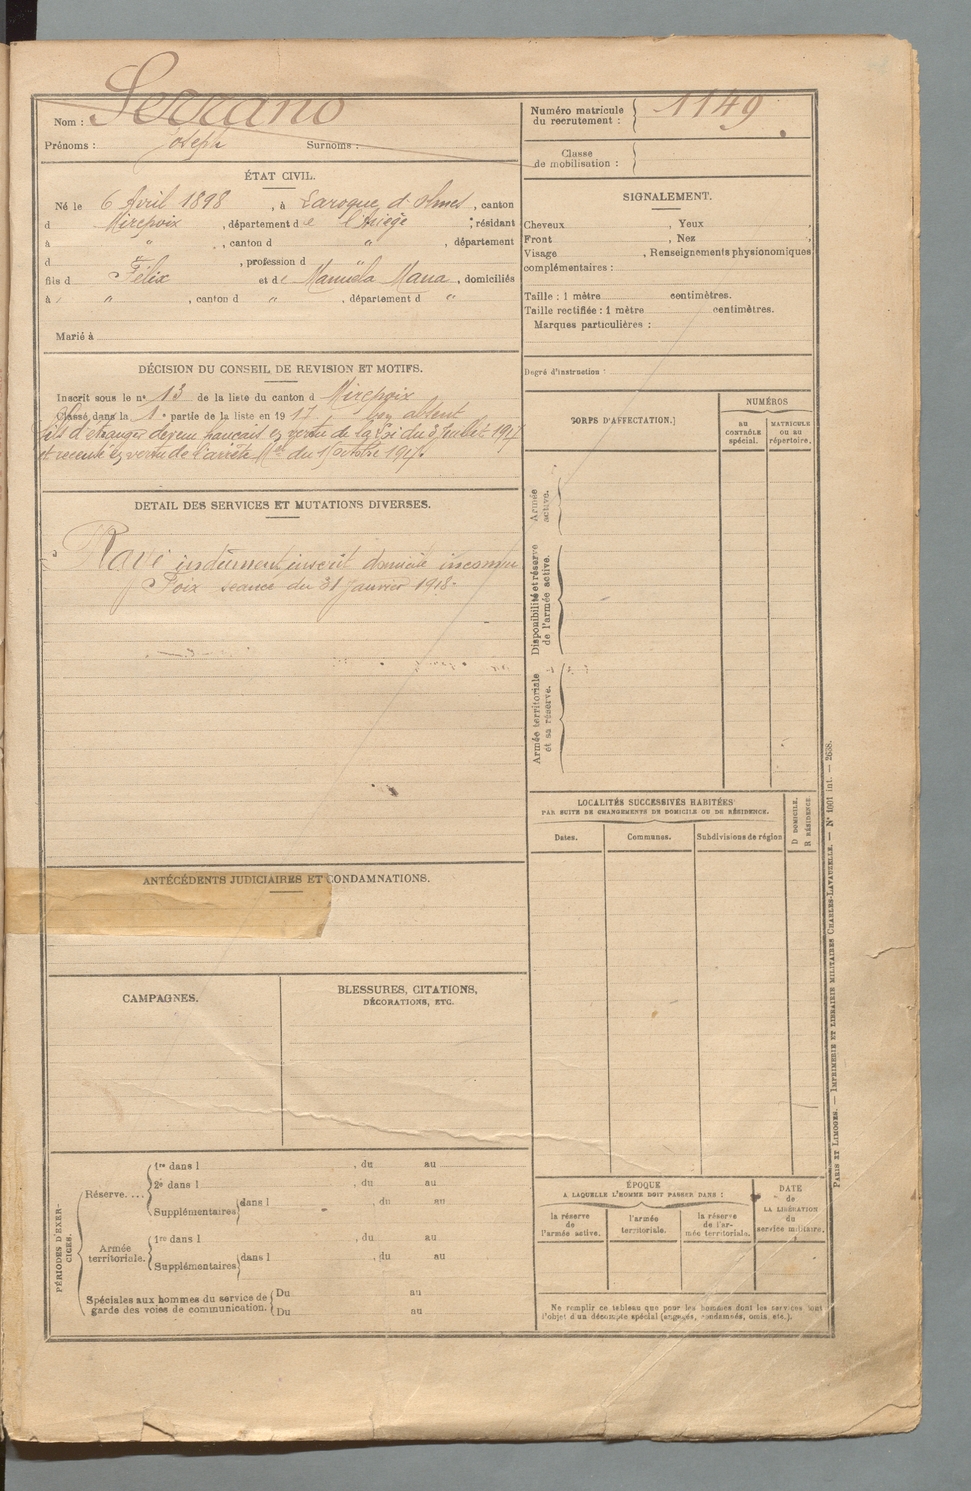 Nom : Serrano
Prénoms : Joseph Surnoms :
Numéro matricule du recrutement : 1149
Classe de mobilisation :
ÉTAT CIVIL.
Né le 6 Avril 1898, à Laroque d'Olmes, canton
d Mirepoix, département de l'Ariège, résidant
à ", canton d ", département
d ", profession d "
fils d Félix et de Manuela Mana, domiciliés
à " ", canton d ", département d "
Marié à
SIGNALEMENT.
Cheveux , Yeux ,
Front , Nez ,
Visage , Renseignements physionomiques
complémentaires :
Taille : 1 mètre centimètres.
Taille rectifiée : 1 mètre centimètres.
Marques particulières :
Degré d'instruction :
DÉCISION DU CONSEIL DE REVISION ET MOTIFS.
Inscrit sous le n° 13 de la liste du canton d Mirepoix
Classé dans la 1e partie de la liste en 1917. bon absent
fils d'étranger devenu français en vertu de la loi du 3 Juillet 1917
et recensé en vertu de l'arrêté Mel du 15 octobre 1917.
DETAIL DES SERVICES ET MUTATIONS DIVERSES.
Rayé indûment inscrit domicile inconnu
Foix séance du 31 Janvier 1918.
CORPS D'AFFECTATION.
NUMÉROS
AU CONTRÔLE spécial.
MATRICULE OU AU répertoire.
Armée active.
Disponibilité et réserve de l'armée active.
Armée territoriale et sa réserve.
LOCALITÉS SUCCESSIVES HABITÉES
PAR SUITE DE CHANGEMENTS DE DOMICILE OU DE RÉSIDENCE.
Dates. Communes. Subdivisions de région
D DOMICILE.
R RÉSIDENCE
ANTÉCÉDENTS JUDICIAIRES ET CONDAMNATIONS.
CAMPAGNES.
BLESSURES, CITATIONS,
DÉCORATIONS, ETC.
PÉRIODES D'EXERCICES.
Réserve....
1re dans l , du au
2e dans l , du au
Supplémentaires dans l , du au
Armée territoriale.
1re dans l , du au
Supplémentaires dans l , du au
Spéciales aux hommes du service de
garde des voies de communication.
Du au
Du au
ÉPOQUE
A LAQUELLE L'HOMME DOIT PASSER DANS :
la réserve de l'armée active.
l'armée territoriale.
la réserve de l'armée territoriale.
DATE de LA LIBÉRATION du service militaire.
Ne remplir ce tableau que pour les hommes dont les services font
l'objet d'un décompte spécial (engagés, condamnés, omis, etc.).
PARIS ET LIMOGES. — IMPRIMERIE ET LIBRAIRIE MILITAIRES CHARLES-LAVAUZELLE. — N° 1001 int. — 2638.